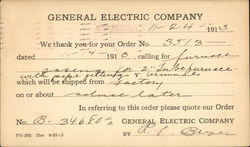 GENERAL ELECTRIC COMPANY
11-24- 1913
We thank you for your Order No. 3513-
dated 11-14 1913, calling for furnace
casing for 2" tube furnace
with pipe fittings &
which will be shipped from factory
on or about advise later
In referring to this order please quote our Order
No. B-34680 GENERAL ELECTRIC COMPANY
BY
FN-262 25m 9-23-13